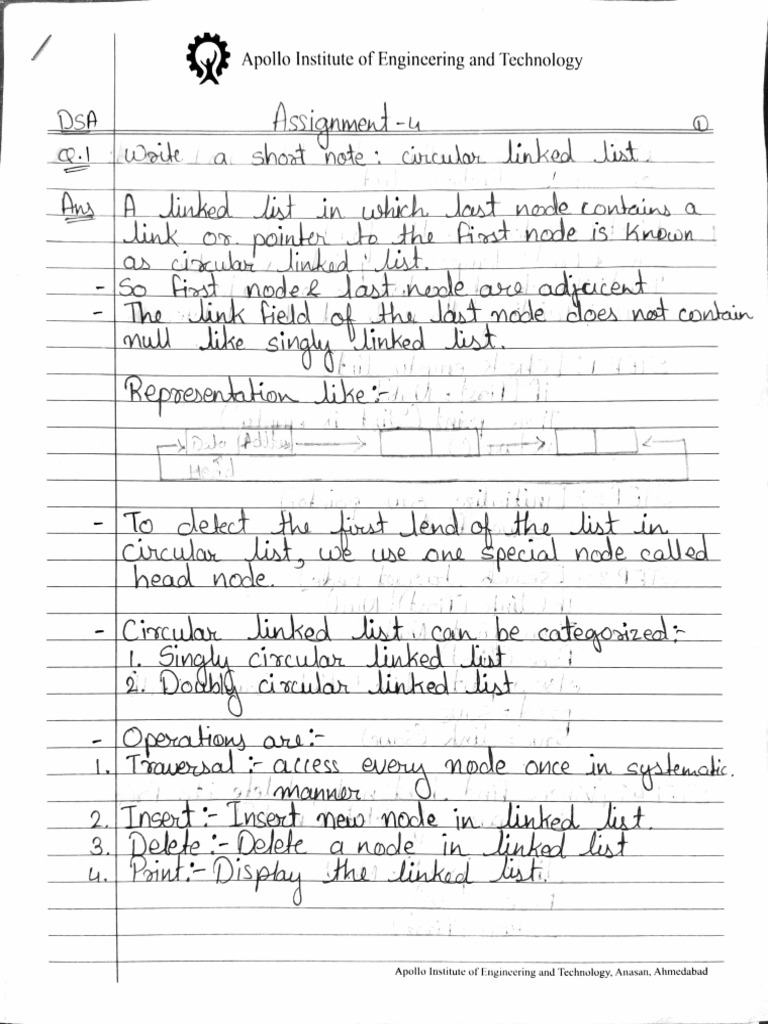 Apollo Institute of Engineering and Technology
DSA Assignment-4 1
Q.1 Write a short note: circular linked list.
Ans A linked list in which last node contains a
link or pointer to the first node is known
as circular linked list.
- So first node & last node are adjacent
- The link field of the last node does not contain
null like singly linked list.
Representation like:-
- To detect the first lend of the list in
circular list, we use one special node called
head node.
- Circular linked list can be categorized:-
1. Singly circular linked list
2. Doubly circular linked list
- Operations are:-
1. Traversal :- access every node once in systematic.
manner.
2. Insert:- Insert new node in linked list.
3. Delete:- Delete a node in linked list
4. Print:- Display the linked list.
Apollo Institute of Engineering and Technology, Anasan, Ahmedabad